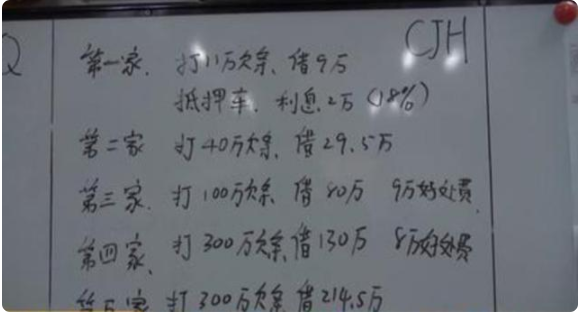 Q
CJH
第一家、打11万欠条、借9万
抵押车、利息2万(18%)
第二家 打40万欠条、借29.5万
第三家、打100万欠条 借80万 9万好处费
第四家、打300万欠条借130万 8万好处费
第五家 打300万欠条 借214.5万